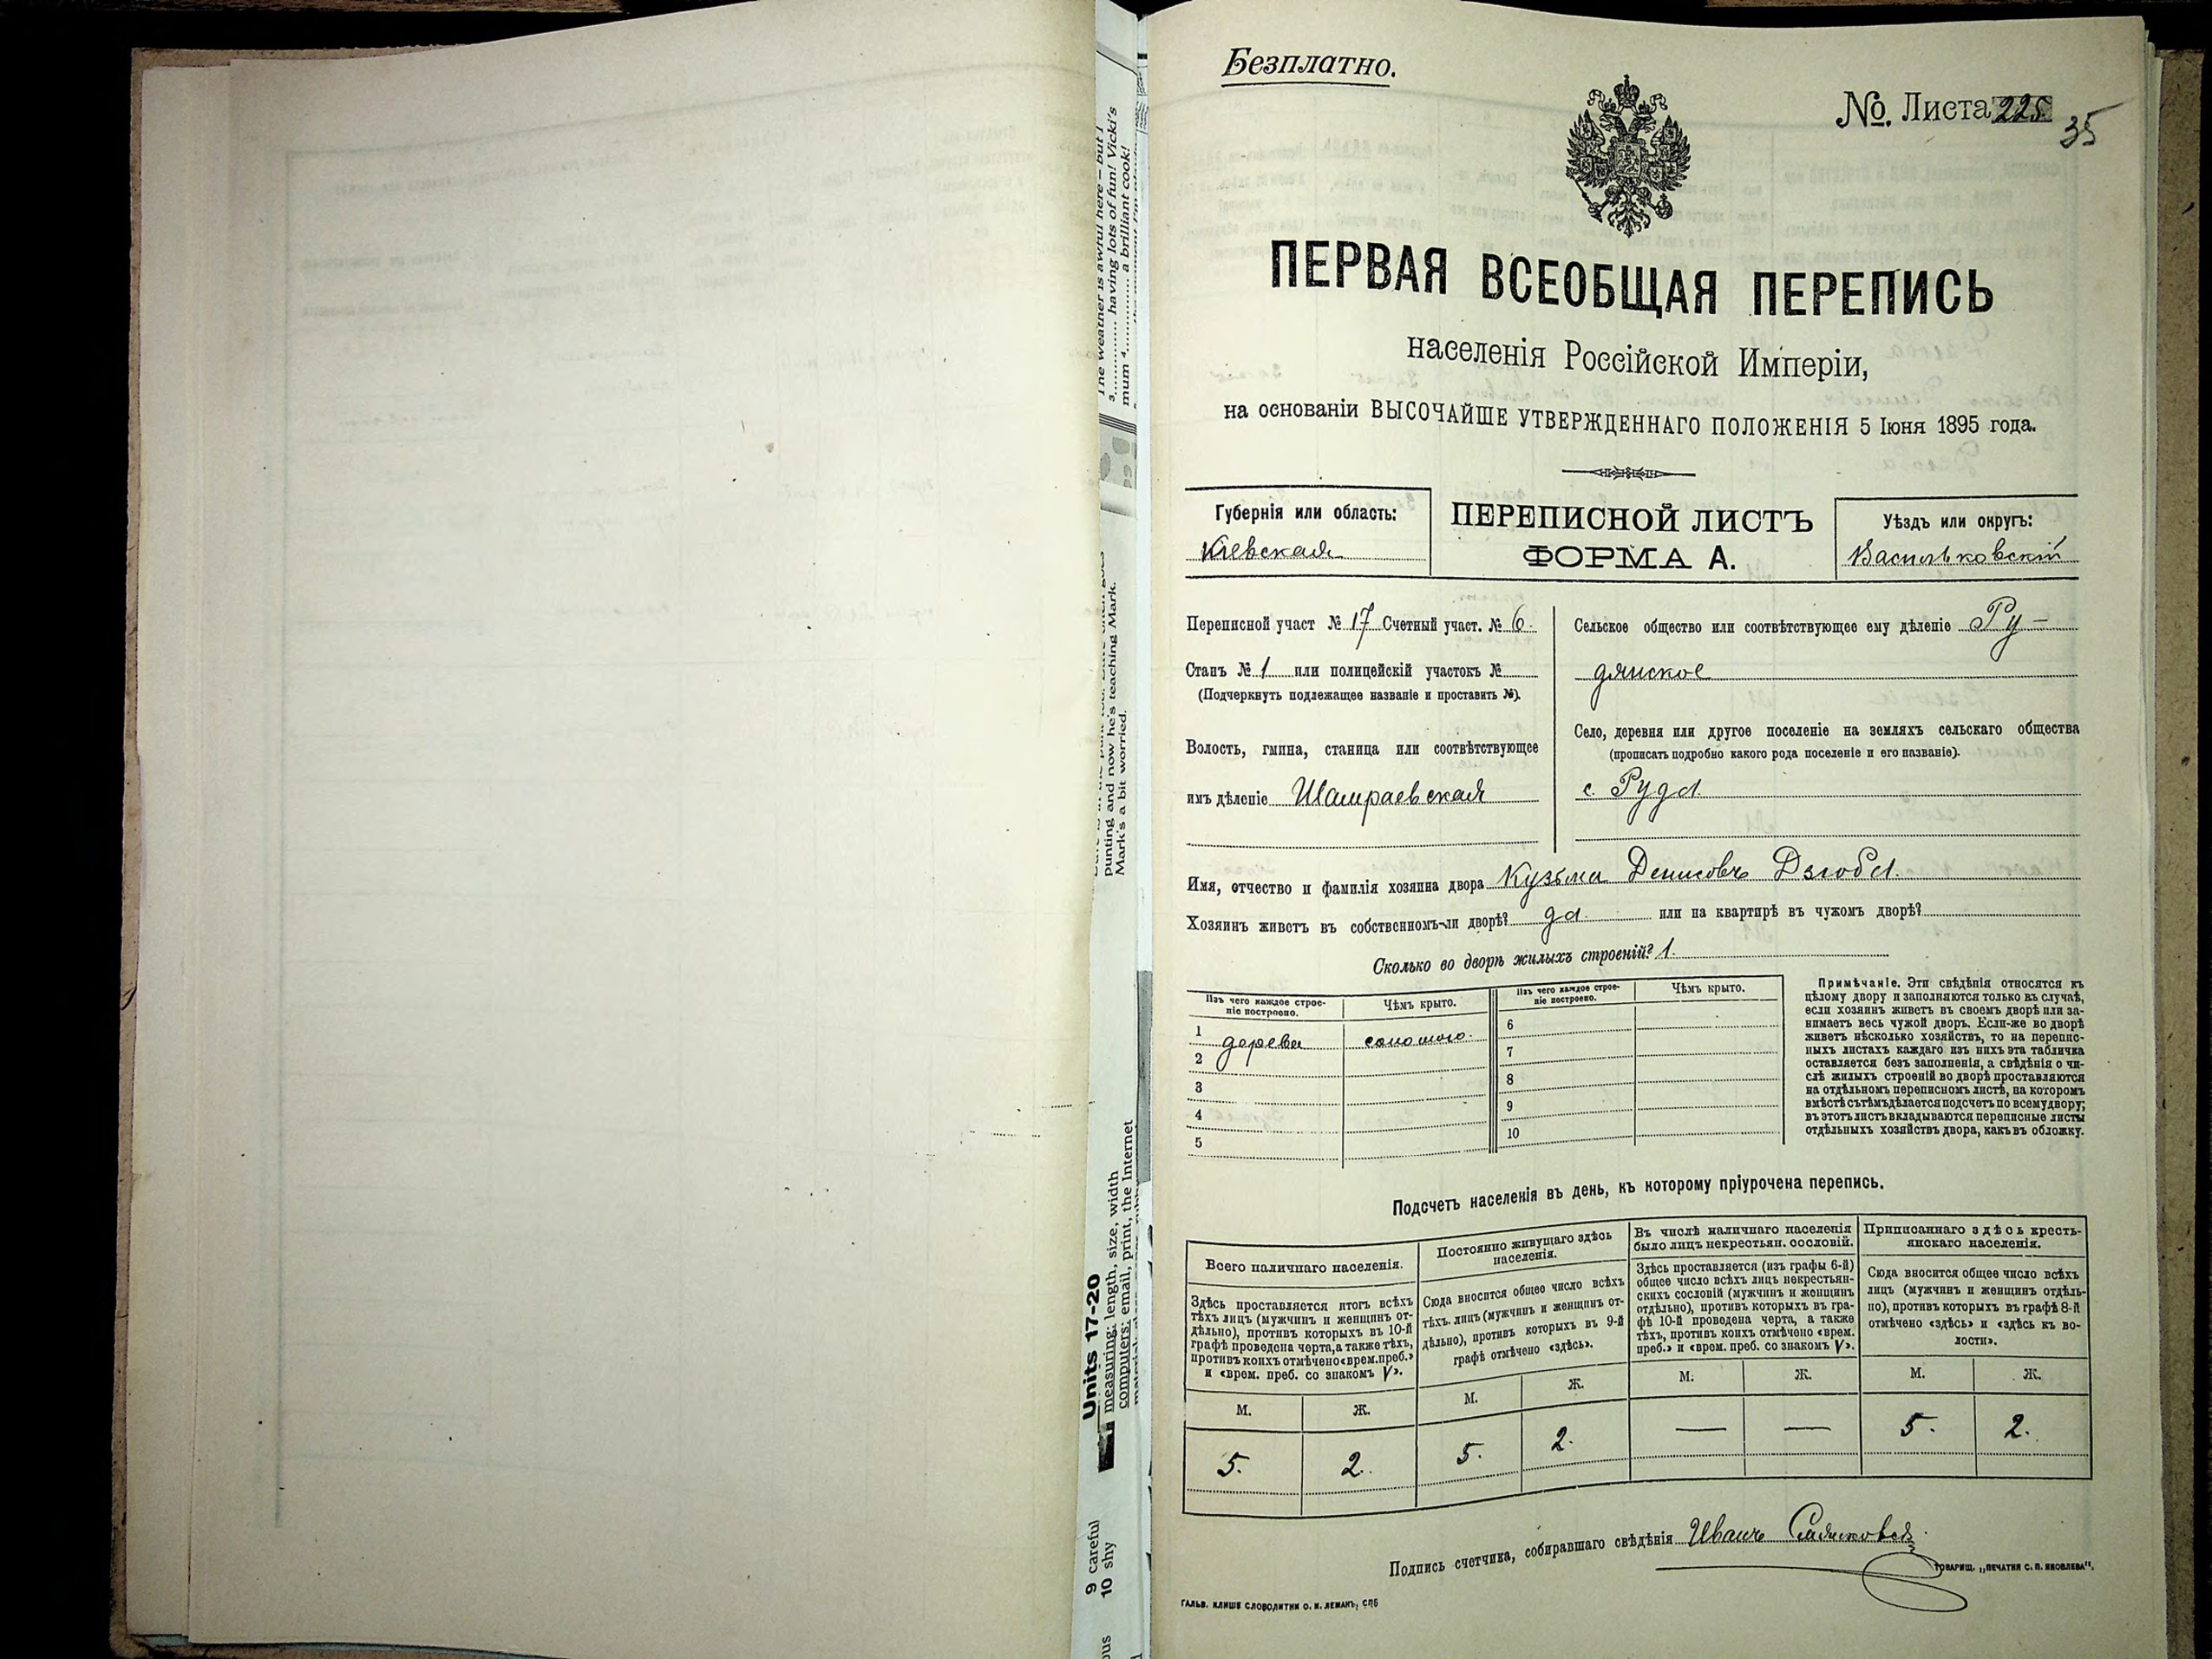 Безплатно.
№. Листа 225.
35
ПЕРВАЯ ВСЕОБЩАЯ ПЕРЕПИСЬ
населенія Россійской Имперіи,
на основаніи ВЫСОЧАЙШЕ УТВЕРЖДЕННАГО ПОЛОЖЕНІЯ 5 Іюня 1895 года.
Губернія или область:
Кіевская
ПЕРЕПИСНОЙ ЛИСТЪ
ФОРМА А.
Уѣздъ или округъ:
Васильковскій
Переписной участ № 17 Счетный участ. № 6.
Станъ № 1 или полицейскій участокъ №
(Подчеркнуть подлежащее названіе и проставить №).
Волость, гмина, станица или соотвѣтствующее
имъ дѣленіе Шамраевская
Сельское общество или соотвѣтствующее ему дѣленіе Ру-
дянское
Село, деревня или другое поселеніе на земляхъ сельскаго общества
(прописать подробно какого рода поселеніе и его названіе).
с. Руда
Имя, отчество и фамилія хозяина двора Кузьма Денисовъ Дзюба.
Хозяинъ живетъ въ собственномъ-ли дворѣ? да или на квартирѣ въ чужомъ дворѣ?
Сколько во дворѣ жилыхъ строеній? 1.
Изъ чего каждое строе-
ніе построено.
Чѣмъ крыто.
Изъ чего каждое строе-
ніе построено.
Чѣмъ крыто.
1 дерева соломою.
2
3
4
5
6
7
8
9
10
Примѣчаніе. Эти свѣдѣнія относятся къ
цѣлому двору и заполняются только въ случаѣ,
если хозяинъ живетъ въ своемъ дворѣ или за-
нимаетъ весь чужой дворъ. Если-же во дворѣ
живетъ нѣсколько хозяйствъ, то на перепис-
ныхъ листахъ каждаго изъ нихъ эта табличка
оставляется безъ заполненія, а свѣдѣнія о чи-
слѣ жилыхъ строеній во дворѣ проставляются
на отдѣльномъ переписномъ листѣ, на которомъ
вмѣстѣ съ тѣмъ дѣлается подсчетъ по всему двору;
въ этотъ листъ вкладываются переписные листы
отдѣльныхъ хозяйствъ двора, какъ въ обложку.
Подсчетъ населенія въ день, къ которому пріурочена перепись.
Всего наличнаго населенія.
Здѣсь проставляется итогъ всѣхъ
тѣхъ лицъ (мужчинъ и женщинъ от-
дѣльно), противъ которыхъ въ 10-й
графѣ проведена черта, а также тѣхъ,
противъ коихъ отмѣчено «врем. преб.»
и «врем. преб. со знакомъ V».
М. Ж.
5. 2.
Постоянно живущаго здѣсь
населенія.
Сюда вносится общее число всѣхъ
тѣхъ лицъ (мужчинъ и женщинъ от-
дѣльно), противъ которыхъ въ 9-й
графѣ отмѣчено «здѣсь».
М. Ж.
5. 2.
Въ числѣ наличнаго населенія
было лицъ некрестьян. сословій.
Здѣсь проставляется (изъ графы 6-й)
общее число всѣхъ лицъ некрестьян-
скихъ сословій (мужчинъ и женщинъ
отдѣльно), противъ которыхъ въ гра-
фѣ 10-й проведена черта, а также
тѣхъ, противъ коихъ отмѣчено «врем.
преб.» и «врем. преб. со знакомъ V».
М. Ж.
— —
Приписаннаго здѣсь кресть-
янскаго населенія.
Сюда вносится общее число всѣхъ
лицъ (мужчинъ и женщинъ отдѣль-
но), противъ которыхъ въ графѣ 8-й
отмѣчено «здѣсь» и «здѣсь къ во-
лости».
М. Ж.
5. 2.
Подпись счетчика, собиравшаго свѣдѣнія Иванъ
ТОВАРИЩ. „ПЕЧАТНЯ С. П. ЯКОВЛЕВА".
ГАЛЬВ. КЛИШЕ СЛОВОЛИТНИ О. И. ЛЕМАНЪ, СПБ
The weather is awful here – but I
3 having lots of fun! Vicki's
mum 4 a brilliant cook!
punting and now he's teaching Mark.
Mark's a bit worried.
Units 17-20
measuring: length, size, width
computers: email, print, the Internet
9 careful
10 shy